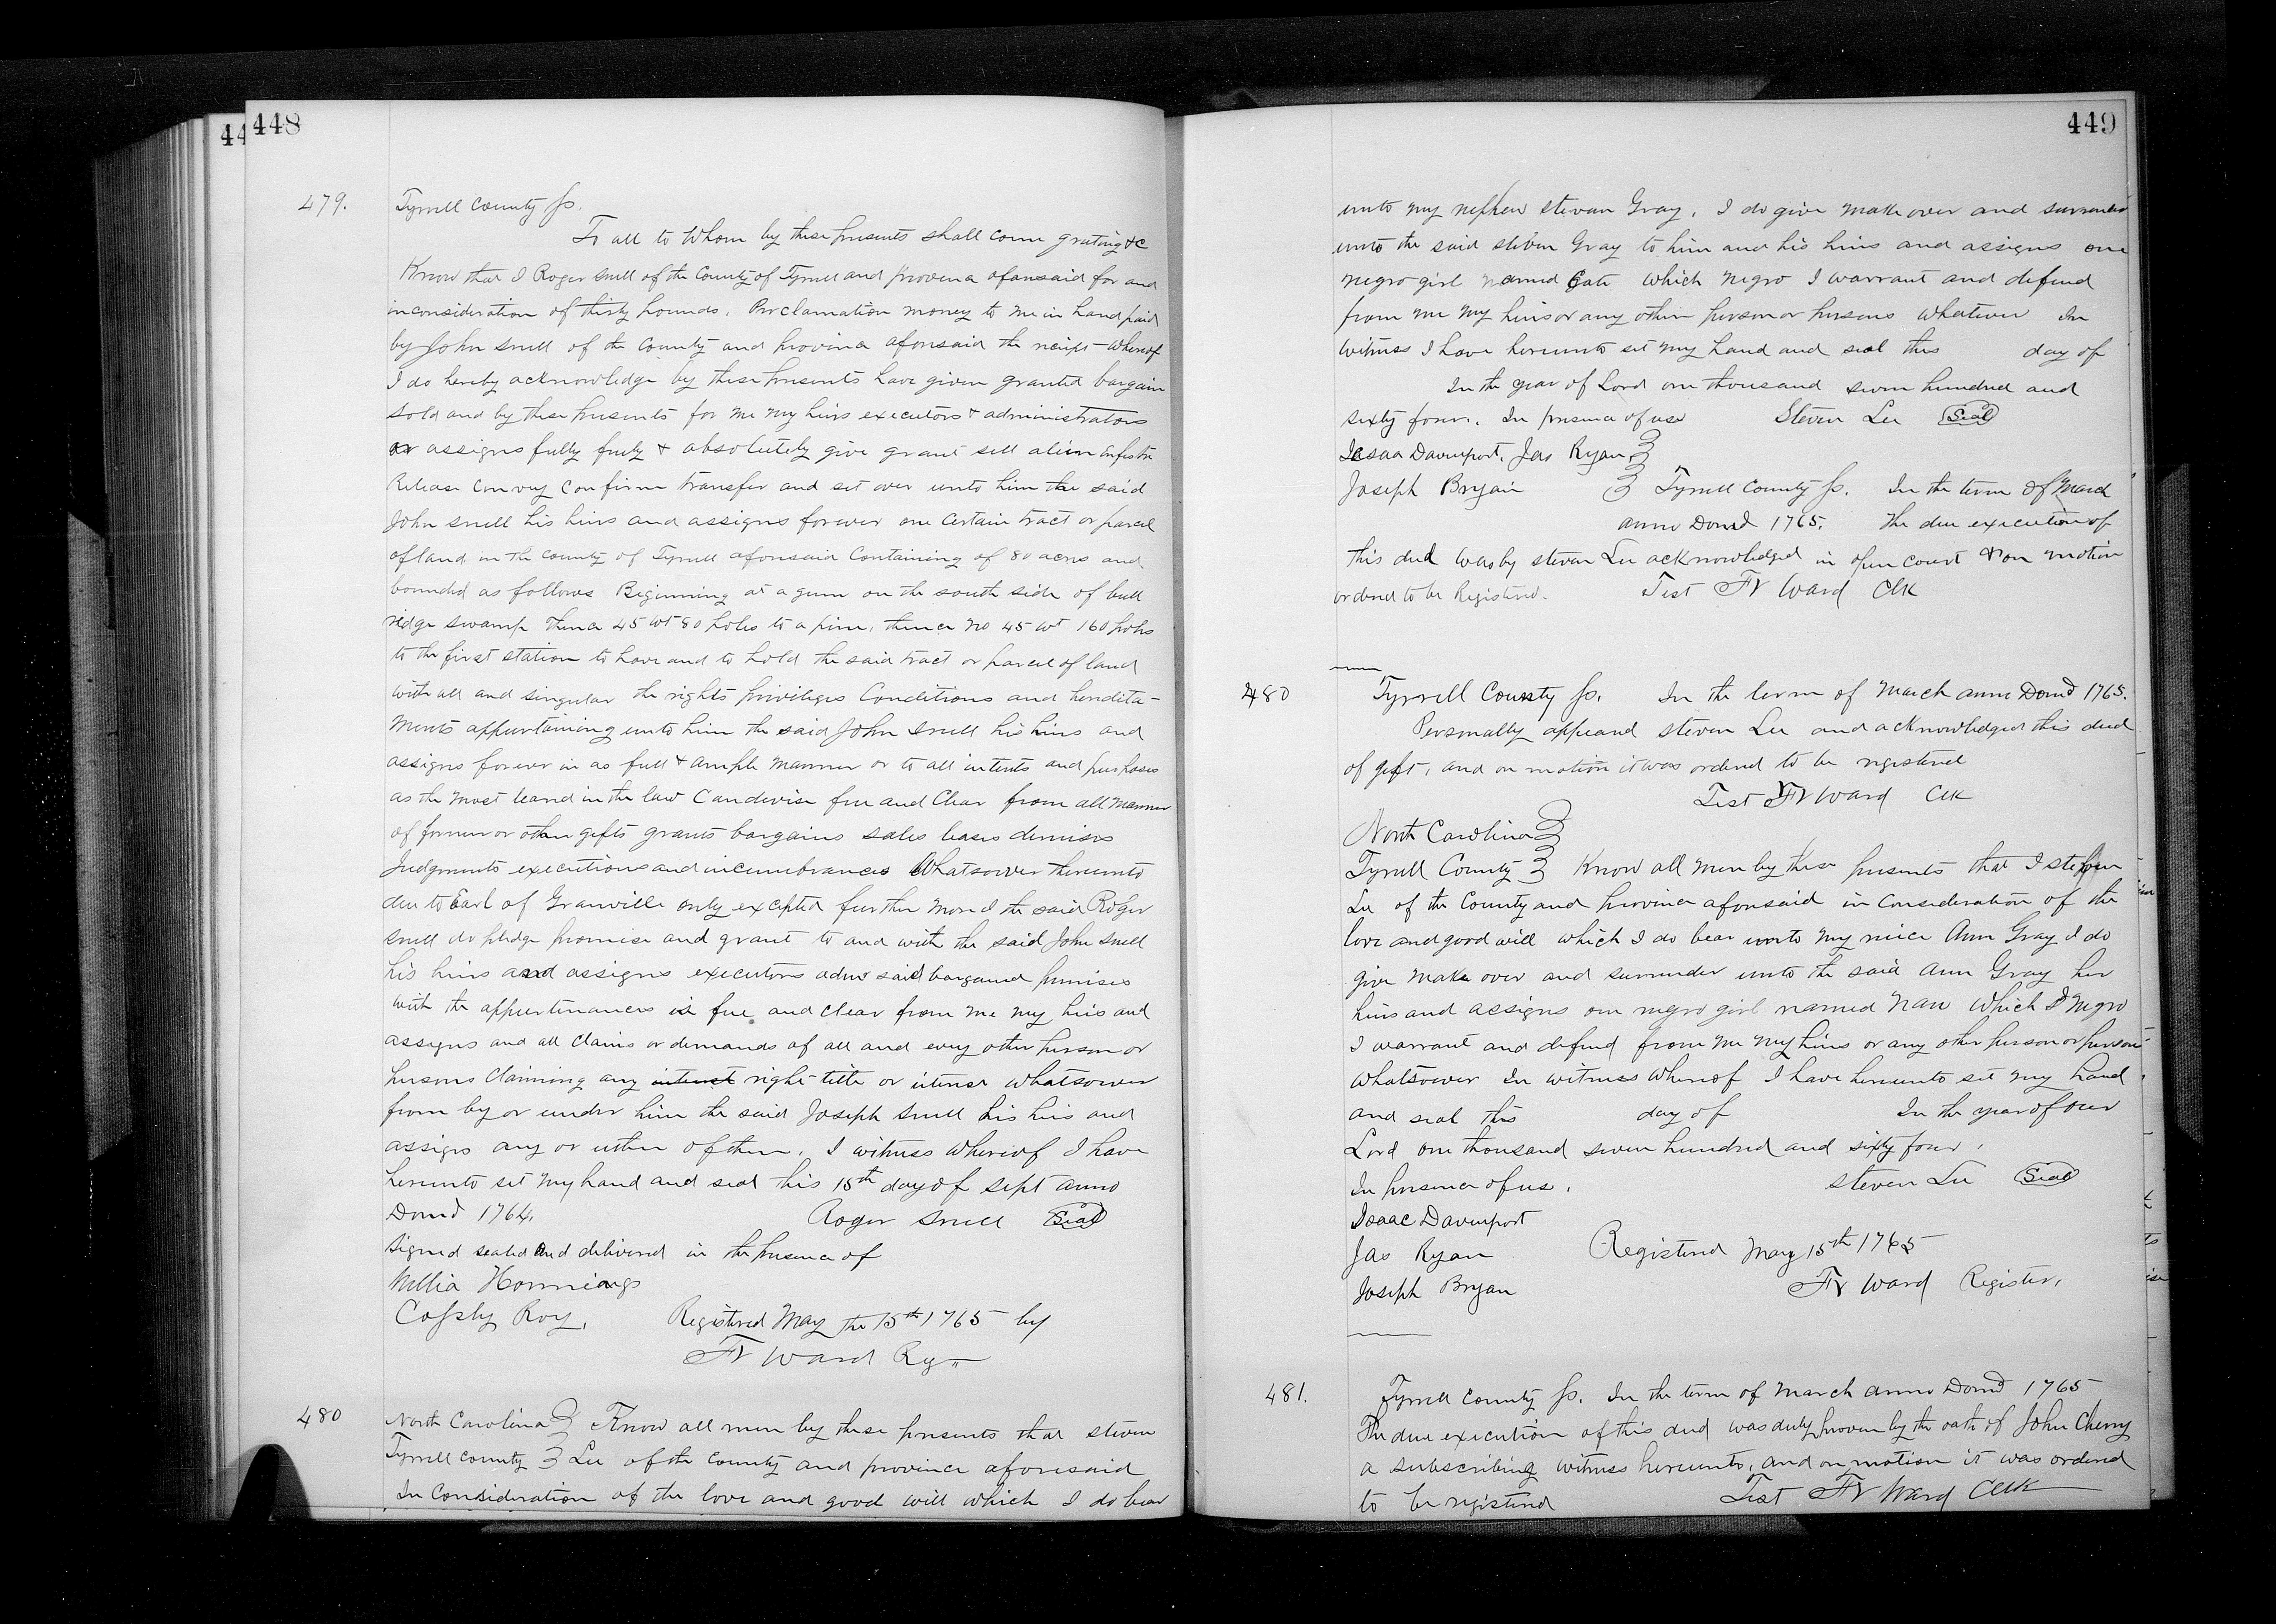 44
448
479.
Tyrrell County Ss.
To all to Whom by these presents shall come greeting &c
Know that I Roger Snell of the County of Tyrrell and province aforesaid for and
in consideration of thirty pounds, Proclamation money to me in hand paid
by John Snell of the County and province aforesaid the receipt whereof
I do hereby acknowledge by these presents have given granted bargain
sold and by these presents for me my heirs executors & administrators
or assigns fully freely & absolutely give grant sell alien enfeofe
Release Convey Confirm transfer and set over unto him the said
John Snell his heirs and assigns forever one certain tract or parcel
of land in the County of Tyrrell aforesaid Containing of 80 acres and
bounded as follows Beginning at a gum on the south side of bull
ridge swamp thence 45 wt 80 poles to a pine, thence no 45 wt 160 poles
to the first station to have and to hold the said tract or parcel of land
with all and singular the rights priviliges Conditions and herdita-
ments appurtaining unto him the said John Snell his heirs and
assigns forever in as full & ample manner or to all intents and purposes
as the most leand in the law Can devise free and Clear from all manner
of former or other gifts grants bargains sales leases demises
Judgments executions and incumbrances Whatsoever thereunto
due to Earl of Granville only excepted further more I the said Roger
Snell do pledge promise and grant to and with the said John Snell
his heirs and assigns executors adms said bargained premises
with the appurtenances is free and clear from me my heirs and
assigns and all Claims or demands of all and every other person or
persons Claiming any interest right title or interest whatsoever
from by or under him the said Joseph Snell his heirs and
assigns any or either of them. I witness whereof I have
hereunto set my hand and seal this 15th day of Sept anno
Domd 1764. Roger Snell Seal
Signed sealed and delivered in the presence of
Willia Hornniangs
Cofsly Roy. Registered May the 15th 1765 by
Fr Ward Rg
480
North Carolina } Know all men by these presents that Steven
Tyrrell County } Lee of the County and province aforesaid
In Consideration of the love and good will which I do bear
449
unto my nephew Stevan Gray, I do give make over and surrender
unto the said Steven Gray to him and his heirs and assigns one
negro girl named Cate which negro I warrant and defend
from me my heirs or any other person or persons whatever In
witness I have hereunto set my hand and seal this day of
In the year of Lord one thousand seven hundred and
sixty four. In presence of us Steven Lee Seal
Icsaa Davenport, Jas Ryan }
Joseph Bryain } Tyrrell County Ss. In the term of March
anno Domd 1765. The due execution of
this deed was by Steven Lee acknowledged in open Court & on motion
ordered to be Registered. Test Fr Ward Clk
480
Tyrrell County Ss. In the term of March anno Domd 1765.
Personally appeared Steven Lee and acknowledged this deed
of gift, and on motion it was ordered to be registered
Test Fr Ward Clk
North Carolina }
Tyrrell County } Know all men by these presents that I Stephen
Lee of the County and province aforesaid in Consideration of the
love and good will which I do bear unto my niece Ann Gray I do
give make over and surrender unto the said Ann Gray her
heirs and assigns one negro girl named Nan which I negro
I warrant and defend from me my heirs or any other person or persons
Whatsoever In witness whereof I have hereunto set my hand
and seal this day of In the year of our
Lord one thousand seven hundred and sixty four.
In presence of us. Steven Lee Seal
Isaac Davenport
Jas Ryan Registered May 15th 1765
Joseph Bryan Fr Ward Register.
481.
Tyrrell County Ss. In the term of March anno Domd 1765
The due execution of this deed was duly proven by the oath of John Cherry
a subscribing witness hereunto, and on motion it was ordered
to be registered Test Fr Ward Clk